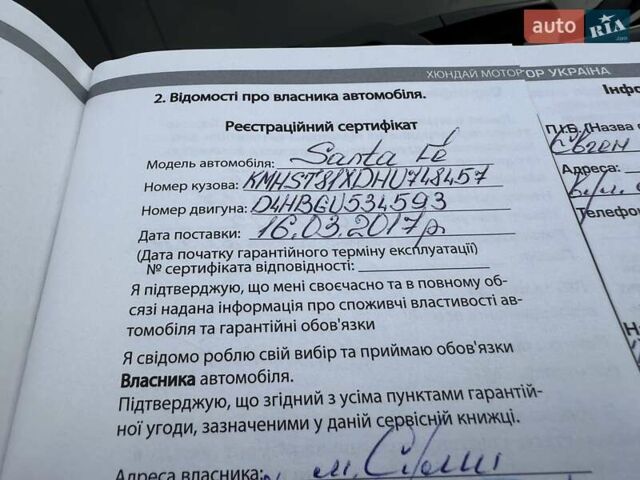 auto RIA .com
ХЮНДАЙ МОТОР УКРАЇНА
2. Відомості про власника автомобіля.
Реєстраційний сертифікат
Модель автомобіля: Santa Fe
Номер кузова: KMHST81XDHU748457
Номер двигуна: D4HBGU534593
Дата поставки: 16.03.2017р
(Дата початку гарантійного терміну експлуатації)
№ сертифіката відповідності:
Я підтверджую, що мені своєчасно та в повному об-
сязі надана інформація про споживчі властивості ав-
томобіля та гарантійні обов'язки
Я свідомо роблю свій вибір та приймаю обов'язки
Власника автомобіля.
Підтверджую, що згідний з усіма пунктами гарантій-
ної угоди, зазначеними у даній сервісній книжці.
Адреса власника: м. Суми
Інфо
П.І.Б. (Назва
Євген
Адреса:
Телефо